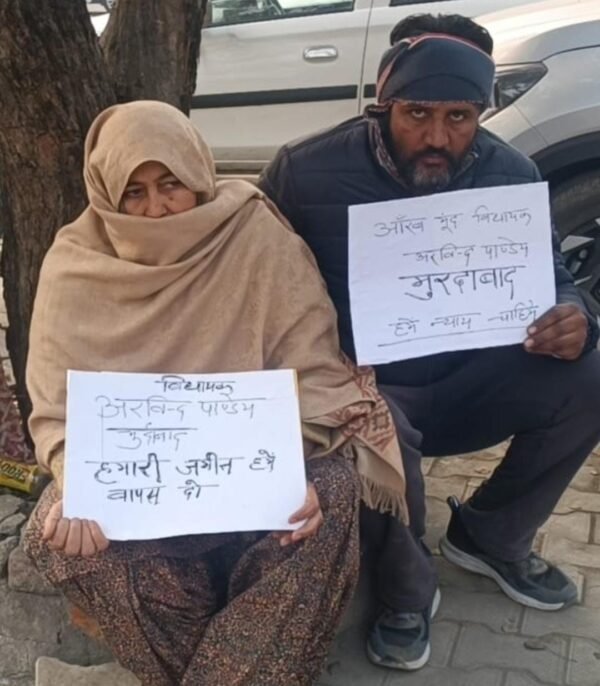 विधायक
अरविन्द पाण्डेय
मुर्दाबाद
हमारी जमीन हमे
वापस दो
आँख मूंद विधायक
अरविन्द पाण्डेय
मुरदाबाद
हमे न्याय चाहिये